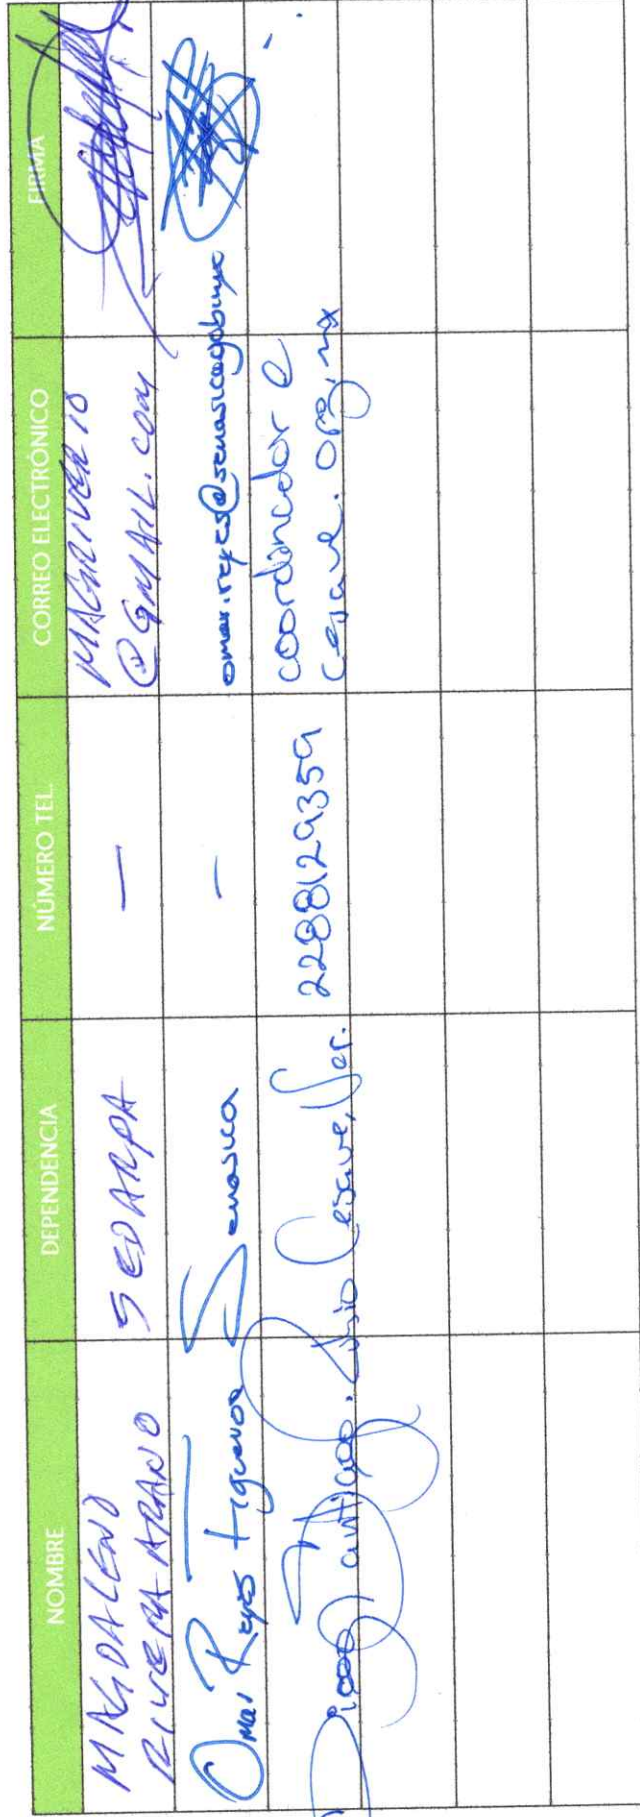 NOMBRE DEPENDENCIA NÚMERO TEL. CORREO ELECTRÓNICO FIRMA
MAGDALENO SEDARPA — MAGRIVER10
RIVERA ARANO @GMAIL.COM
Omar Reyes Figueroa Senasica - omar.reyes@senasica.gob.mx
Diego Santiago Cesave, Ver. 2288129359 coordinador@
cesave.org.mx